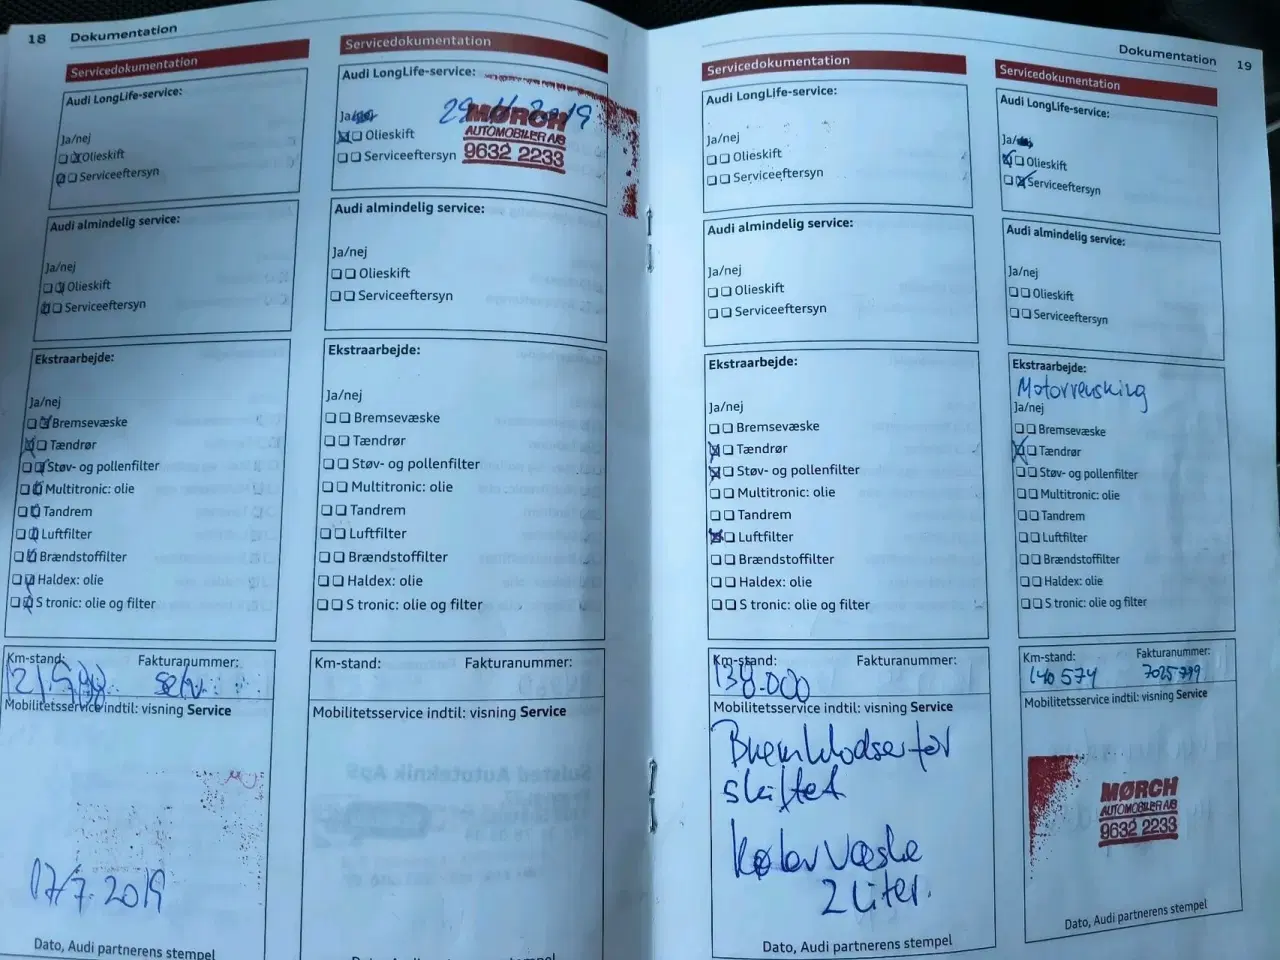 18 Dokumentation
Servicedokumentation
Audi LongLife-service:
Ja/nej
Olieskift
Serviceeftersyn
Audi almindelig service:
Ja/nej
Olieskift
Serviceeftersyn
Ekstraarbejde:
Ja/nej
Bremsevæske
Tændrør
Støv- og pollenfilter
Multitronic: olie
Tandrem
Luftfilter
Brændstoffilter
Haldex: olie
S tronic: olie og filter
Km-stand: Fakturanummer:
Mobilitetsservice indtil: visning Service
17/7.2019
Dato, Audi partnerens stempel
Servicedokumentation
Audi LongLife-service:
2019
MØRCH
AUTOMOBILER A/S
9632 2233
Olieskift
Serviceeftersyn
Audi almindelig service:
Ja/nej
Olieskift
Serviceeftersyn
Ekstraarbejde:
Ja/nej
Bremsevæske
Tændrør
Støv- og pollenfilter
Multitronic: olie
Tandrem
Luftfilter
Brændstoffilter
Haldex: olie
S tronic: olie og filter
Km-stand: Fakturanummer:
Mobilitetsservice indtil: visning Service
Dato, Audi partnerens stempel
Dokumentation 19
Servicedokumentation
Audi LongLife-service:
Ja/nej
Olieskift
Serviceeftersyn
Audi almindelig service:
Ja/nej
Olieskift
Serviceeftersyn
Ekstraarbejde:
Ja/nej
Bremsevæske
Tændrør
Støv- og pollenfilter
Multitronic: olie
Tandrem
Luftfilter
Brændstoffilter
Haldex: olie
S tronic: olie og filter
Km-stand: Fakturanummer:
138.000
Mobilitetsservice indtil: visning Service
for
skiftet
Køler Væske
2 Liter.
Dato, Audi partnerens stempel
Servicedokumentation
Audi LongLife-service:
Olieskift
Serviceeftersyn
Audi almindelig service:
Ja/nej
Olieskift
Serviceeftersyn
Ekstraarbejde:
Motorrensning
Ja/nej
Bremsevæske
Tændrør
Støv- og pollenfilter
Multitronic: olie
Tandrem
Luftfilter
Brændstoffilter
Haldex: olie
S tronic: olie og filter
Km-stand: Fakturanummer:
140 574
Mobilitetsservice indtil: visning Service
MØRCH
AUTOMOBILER A/S
9632 2233
Dato, Audi partnerens stempel